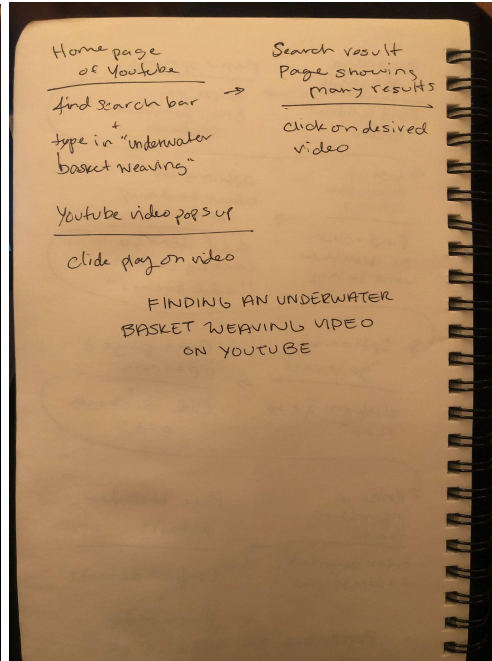 Home page
of Youtube
find search bar
+
type in "underwater
basket weaving"
→
Search result
Page showing
many results
click on desired
video
Youtube video pops up
click play on video
FINDING AN UNDERWATER
BASKET WEAVING VIDEO
ON YOUTUBE